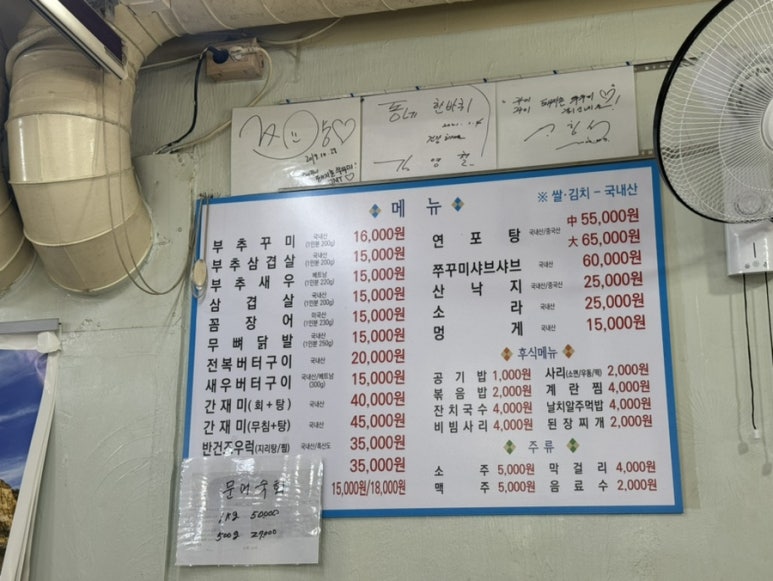 동기 한바퀴
김영철
2019.10.28
메뉴
※ 쌀·김치 - 국내산
부추쭈꾸미 국내산 (1인분 200g) 16,000원
부추삼겹살 국내산 (1인분 200g) 15,000원
부추새우 베트남 (1인분 220g) 15,000원
삼겹살 국내산 (1인분 200g) 15,000원
꼼장어 미국산 (1인분 230g) 15,000원
무뼈닭발 국내산 (1인분 250g) 15,000원
전복버터구이 국내산 20,000원
새우버터구이 국내산/베트남 (300g) 15,000원
간재미(회+탕) 국내산 40,000원
간재미(무침+탕) 국내산 45,000원
반건조우럭(지리탕/찜) 국내산/흑산도 35,000원
35,000원
15,000원/18,000원
연포탕 국내산/중국산 中 55,000원
大 65,000원
쭈꾸미샤브샤브 국내산 60,000원
산낙지 국내산/중국산 25,000원
소라 국내산 25,000원
멍게 국내산 15,000원
후식메뉴
공기밥 1,000원 사리(소면/우동/떡) 2,000원
볶음밥 2,000원 계란찜 4,000원
잔치국수 4,000원 날치알주먹밥 4,000원
비빔사리 4,000원 된장찌개 2,000원
주류
소주 5,000원 막걸리 4,000원
맥주 5,000원 음료수 2,000원
문어숙회
1kg 50,000
500g 27,000